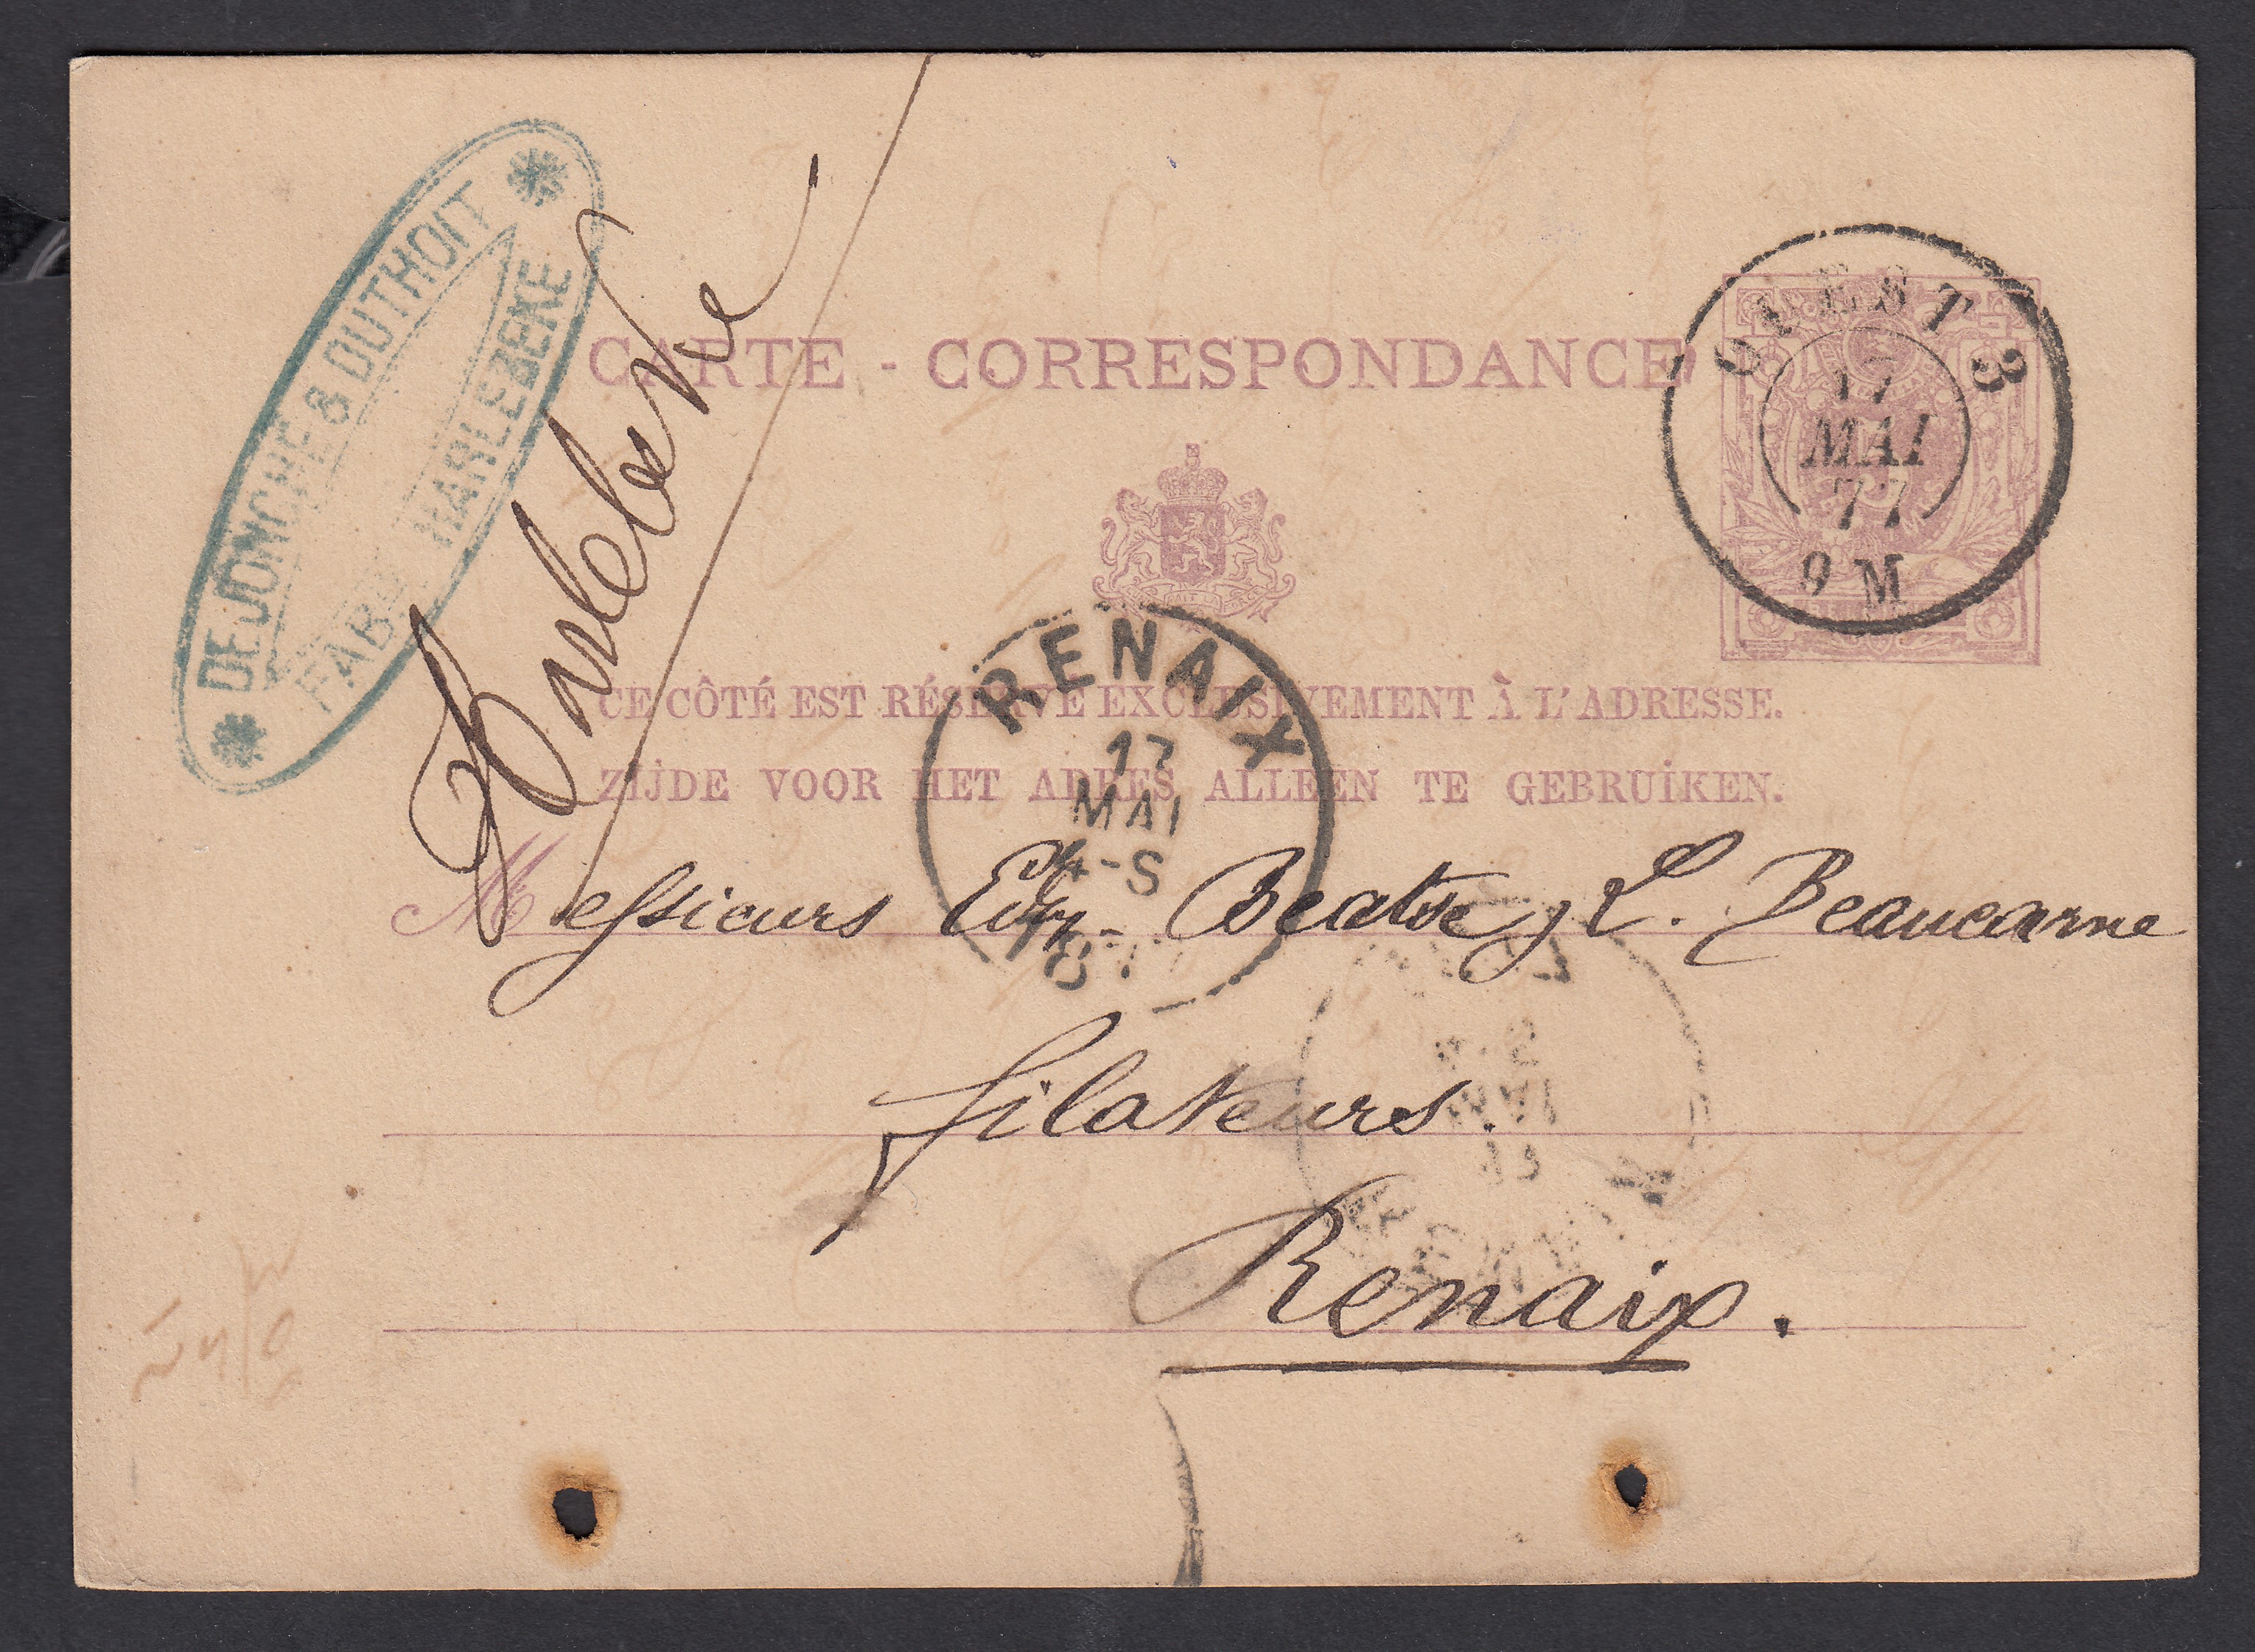 DEJONCHE & DUTHOIT
FAB HARLEBEKE
Harlebeke
CARTE - CORRESPONDANCE
OUEST 3
17
MAI
77
9 M
FAIT LA
CE CÔTÉ EST RÉSERVÉ EXCLUSIVEMENT À L'ADRESSE.
ZIJDE VOOR HET ADRES ALLEEN TE GEBRUIKEN.
RENAIX
17
MAI
4-S
187
Messieurs Beatse, L. Beaucarne
filateurs.
Renaix.